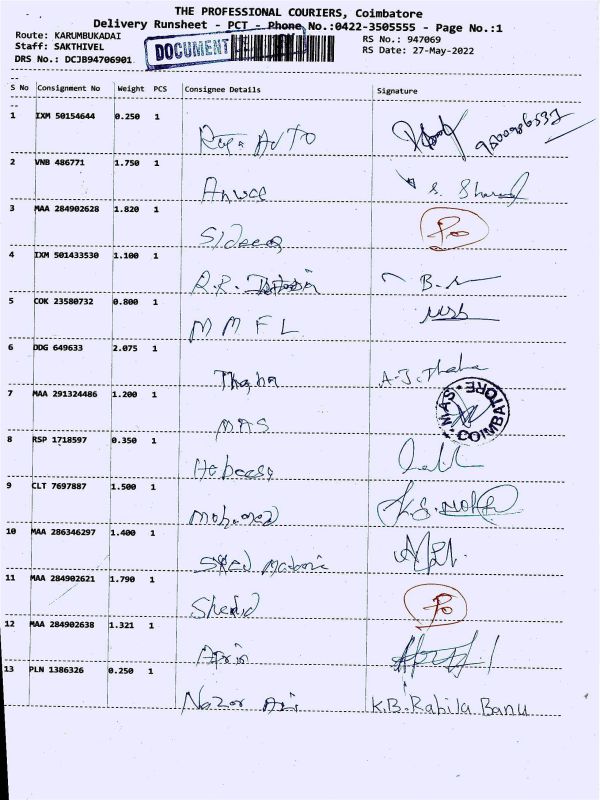 THE PROFESSIONAL COURIERS, Coimbatore
Delivery Runsheet - PCT - Phone No.:0422-3505555 - Page No.:1
Route: KARUMBUKADAI RS No.: 947069
Staff: SAKTHIVEL DOCUMENT RS Date: 27-May-2022
DRS No.: DCJB94706901
S No Consignment No Weight PCS Consignee Details Signature
1 IXM 50154644 0.250 1
2 VNB 486771 1.750 1
3 MAA 284902628 1.820 1
4 IXM 501433530 1.100 1
R.R.
5 COK 23580732 0.800 1
M M F L
6 DDG 649633 2.075 1
Thaha A.J. Thaha
7 MAA 291324486 1.200 1
MAS MAS COIMBATORE
8 RSP 1718597 0.350 1
9 CLT 7697887 1.500 1
Mohamed
10 MAA 286346297 1.400 1
11 MAA 284902621 1.790 1
12 MAA 284902638 1.321 1
13 PLN 1386326 0.250 1
K.B. Rahila Banu